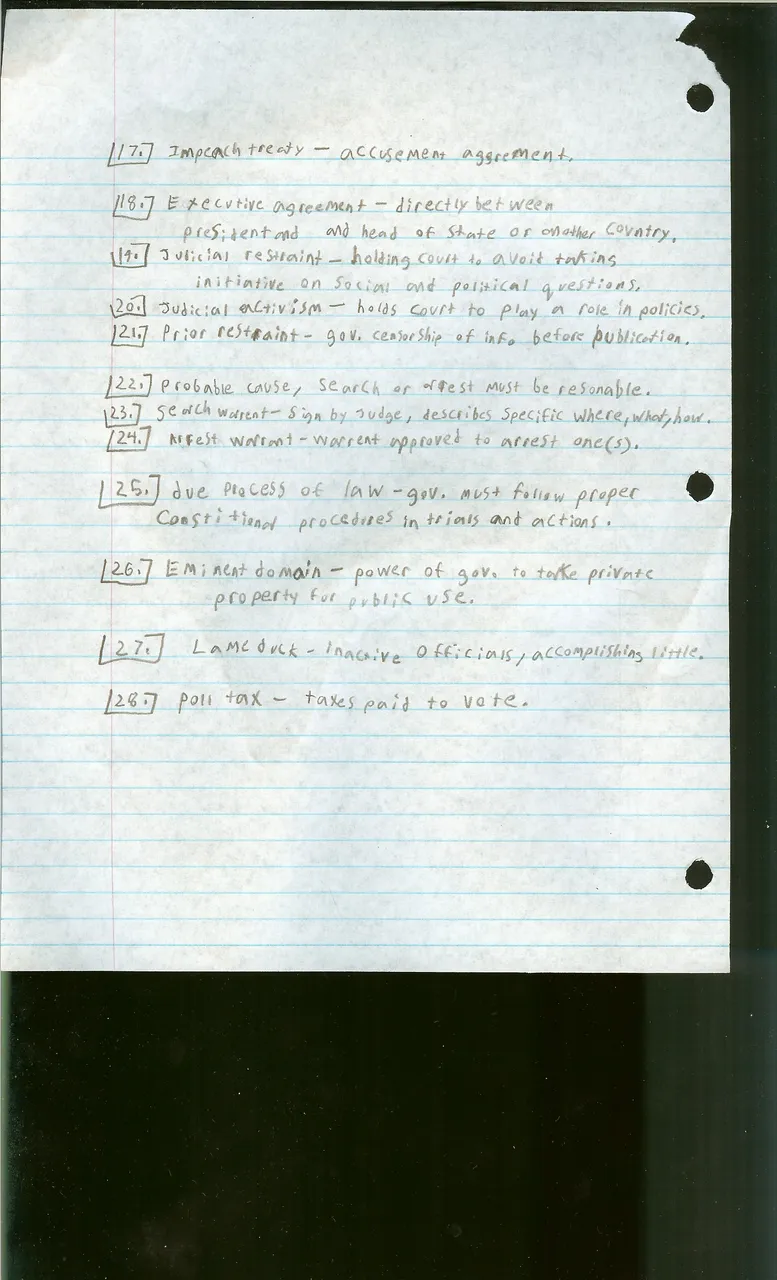 17. Impeach treaty – accusement aggrement.
18. Executive agreement – directly between
president and and head of state or another country.
19. Judicial restraint – holding court to avoid taking
initiative on social and political questions.
20. Judicial activism – holds court to play a role in policies.
21. Prior restraint – gov. censorship of info before publication.
22. Probable cause, search or arrest must be resonable.
23. Search warrent – sign by Judge, describes specific where, what, how.
24. Arrest warrant – warrent approved to arrest one(s).
25. due process of law – gov. must follow proper
Constitional procedures in trials and actions.
26. Eminent domain – power of gov. to take private
property for public use.
27. Lame duck – inactive officials, accomplishing little.
28. Poll tax – taxes paid to vote.